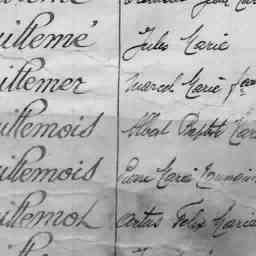 uillemé Jules Marie
uillemer Marcel Marie
uillemois Albert Baptiste Mar
uillemois Pierre Marie
uillemot Artus Félix Marie